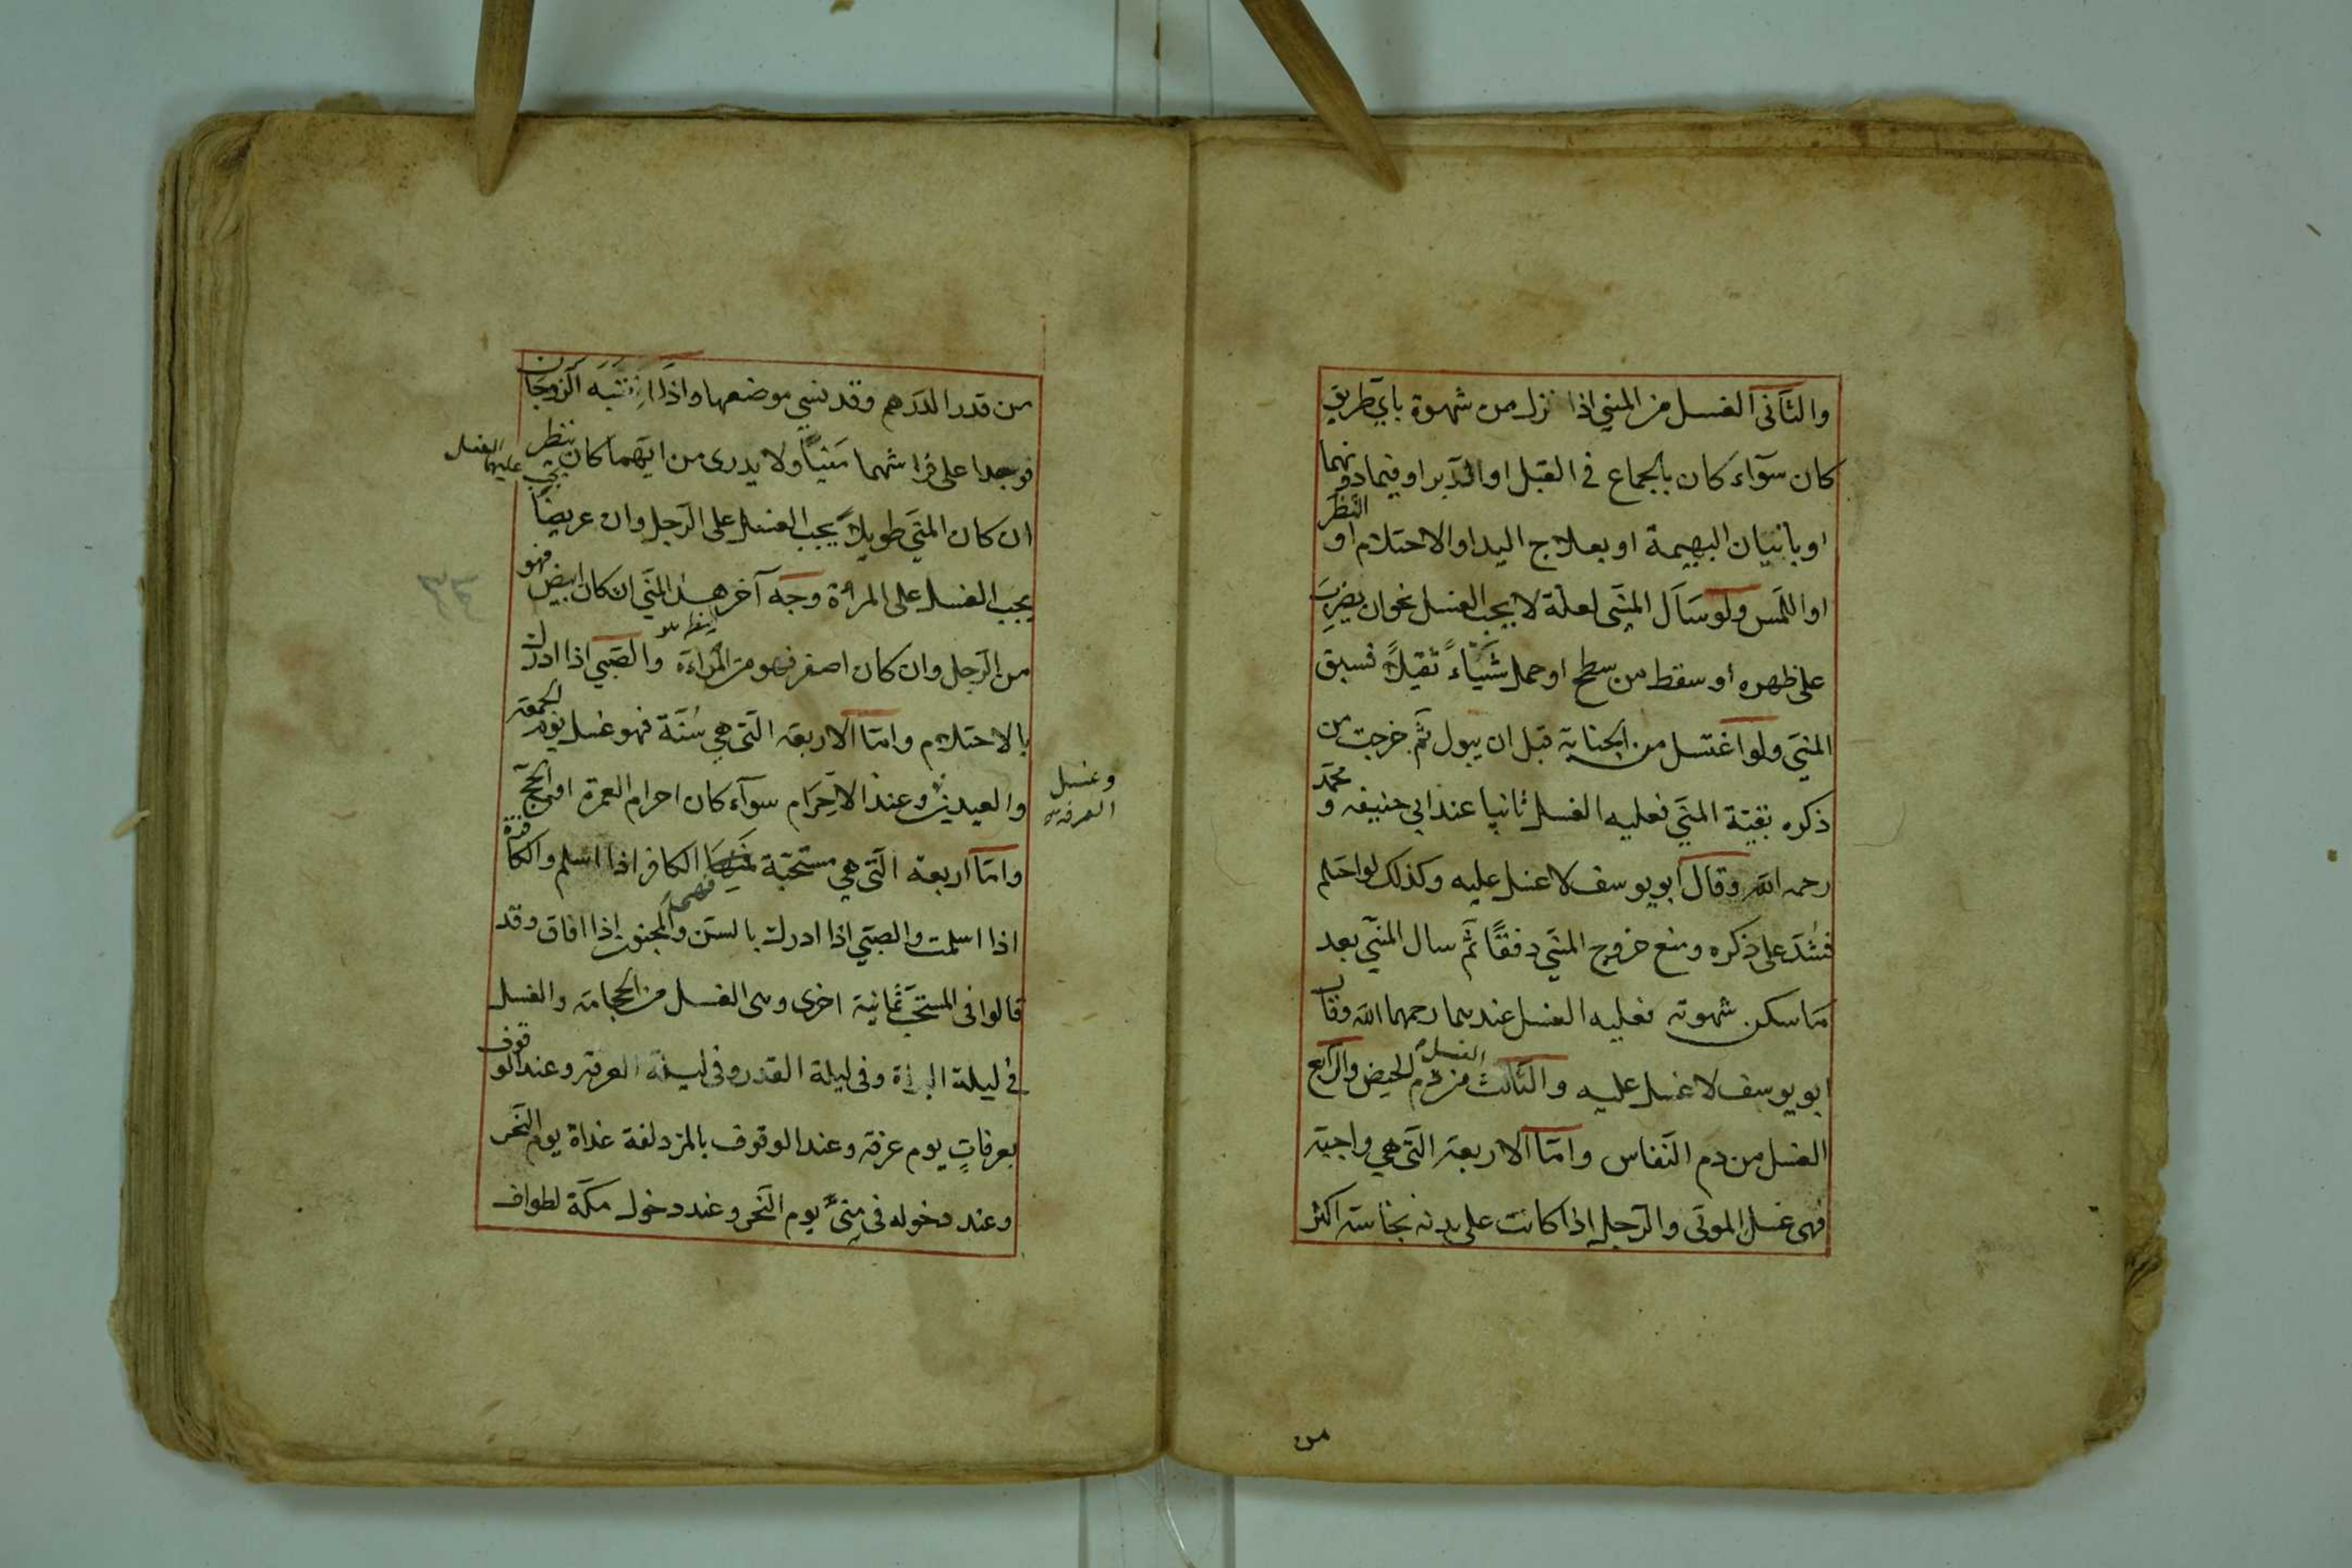 والثّانى الغسل من المنيّ اذا نزل من شهوة بايّ طريق
كان سوآء كان بالجماع فى القبل او الدّبر او فيما دونهما
او باتيان البهيمة او بعلاج اليد او الاحتلام او النّظر
او اللّمس ولو سَاَل المنيّ لعلّة لا يجب الغسل نحو ان يضرب
على ظهره او سقط من سطح او حمل شيئاً ثقيلاً فسبق
المنيّ ولو اغتسل من الجنابة قبل ان يبول ثمّ خرجت من
ذكره بقيّة المنيّ فعليه الغسل ثانيا عند ابي حنيفه و محمّد
رحمه الله وقال ابو يوسف لا غسل عليه وكذلك لو احتلم
فشدّ على ذكره ومنع خروج المنيّ دفقًا ثمّ سال المنيّ بعد
ما سكن شهوته فعليه الغسل عندهما رحمهما الله وقال
ابو يوسف لا غسل عليه والثّالث الغسل من دم الحيض والرّابع
الغسل من دم النّفاس وامّا الاربعة الّتى هي واجبة
فهى غسل الموتى والرّجل اذا كانت على بدنه نجاسته اكثر
من
من قدر الدّرهم وقد نسي موضعها واذا انتبه الزوجان
فوجدا على فراشهما منيّاً ولا يدرى من ايّهما كان ننظر
يجب عليهما الغسل
ان كان المنيّ طويلاً يجب الغسل على الرّجل وان عريضاً
يجب الغسل على المرأة وجه آخر هذا المنيّ ان كان ابيض فهو
من الرّجل وان كان اصفر فهو من المرأة والصّبي اذا ادرك
بالاحتلام وامّا الاربعة الّتى هي سُنّة فهو غسل يوم الجمعة
والعيدين وعند الاحرام سوآء كان احرام العمرة او الحجّ
وغسل
العرفة
وامّا اربعة الّتى هي مستحبّة فهي الكافر اذا اسلم والكافرة
اذا اسلمت والصبّي اذا ادرك بالسّن والمجنون اذا افاق وقد
قالوا فى المستحبّ ثمانية اخرى وهى الغسل من الحجامة والغسل
في ليلة البراة وفى ليلة القدر وفى ليلة العرفة وعند الوقوف
بعرفاتٍ يوم عرفة وعند الوقوف بالمزدلفة غداة يوم النّحر
وعند دخوله فى منىً يوم النّحر وعند دخول مكّة لطواف